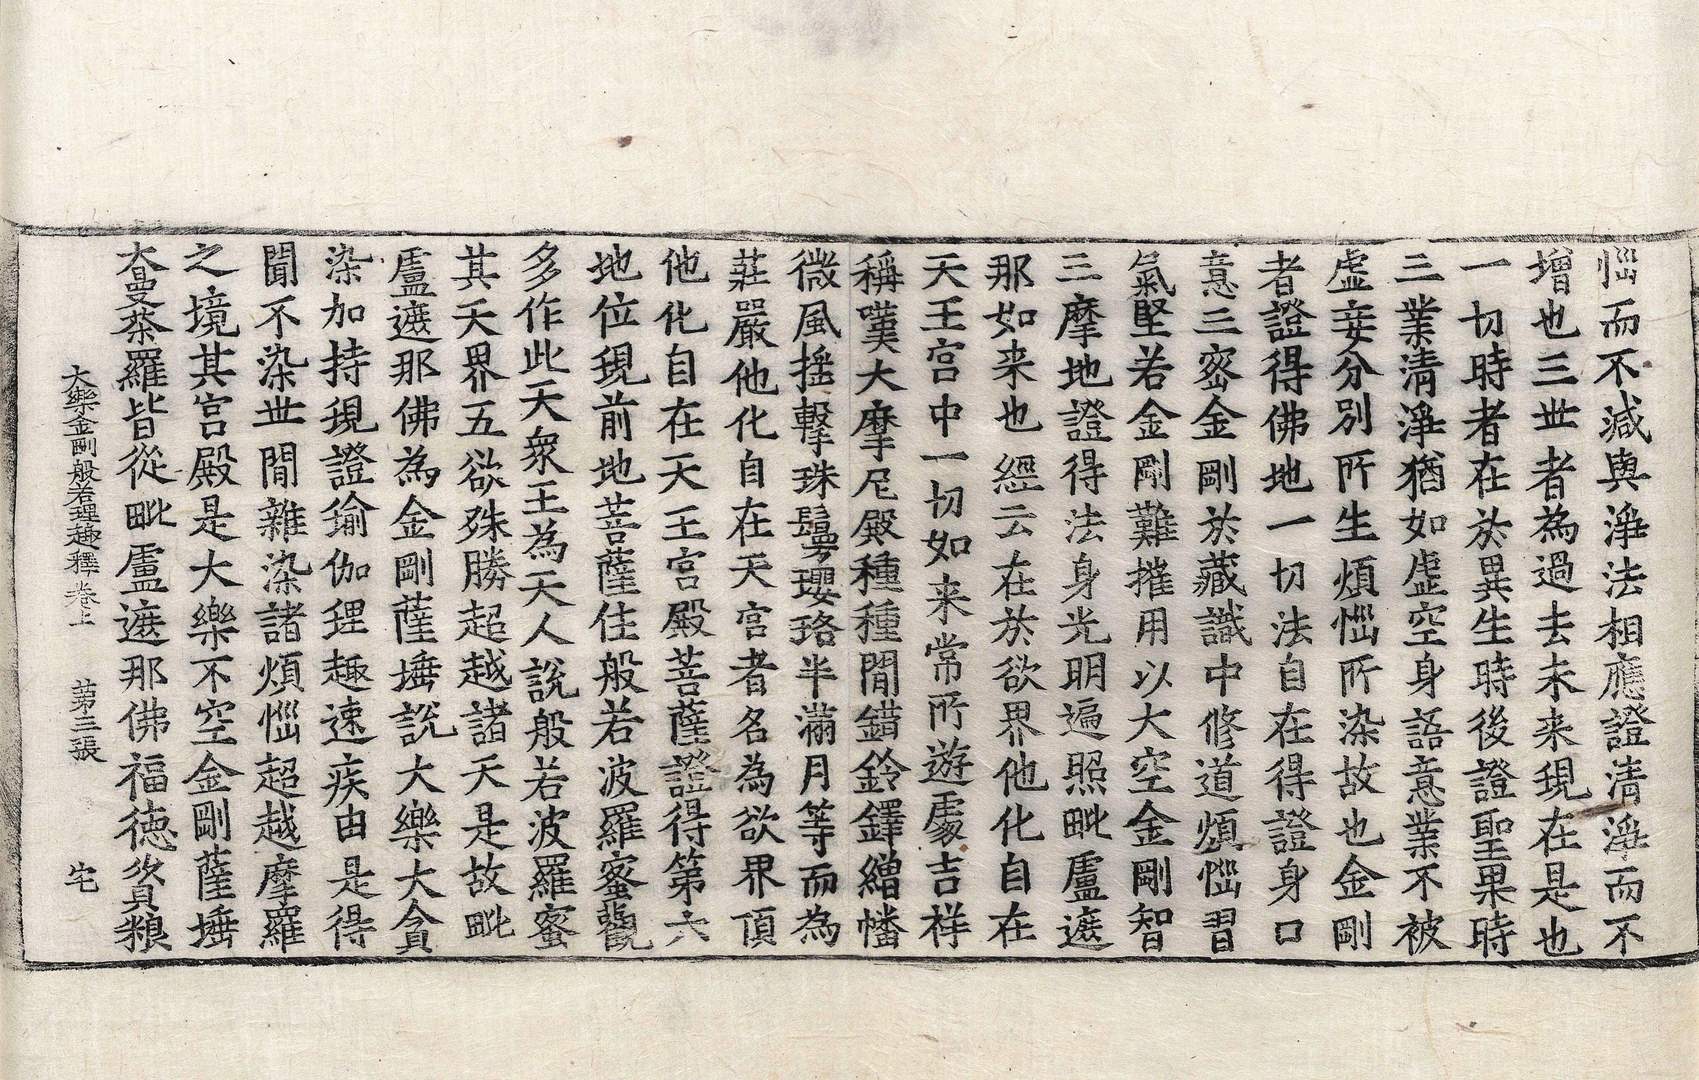 惱而不減與淨法相應證清淨而不
增也三世者為過去未来現在是也
一切時者在於異生時後證聖果時
三業清淨猶如虛空身語意業不被
虛妄分別所生煩惱所染故也金剛
者證得佛地一切法自在得證身口
意三密金剛於藏識中修道煩惱習
氣堅若金剛難摧用以大空金剛智
三摩地證得法身光明遍照毗盧遮
那如来也經云在於欲界他化自在
天王宮中一切如来常所遊處吉祥
稱嘆大摩尼殿種種間錯鈴鐸繒幡
微風搖擊珠鬘瓔珞半滿月等而為
莊嚴他化自在天宮者名為欲界頂
他化自在天王宮殿菩薩證得第六
地位現前地菩薩住般若波羅蜜觀
多作此天衆王為天人說般若波羅蜜
其天界五欲殊勝超越諸天是故毗
盧遮那佛為金剛薩埵說大樂大貪
染加持現證瑜伽理趣速疾由是得
聞不染世間雜染諸煩惱超越摩羅
之境其宮殿是大樂不空金剛薩埵
大曼荼羅皆從毗盧遮那佛福德資糧
大樂金剛般若理趣釋卷上 第三張 宅